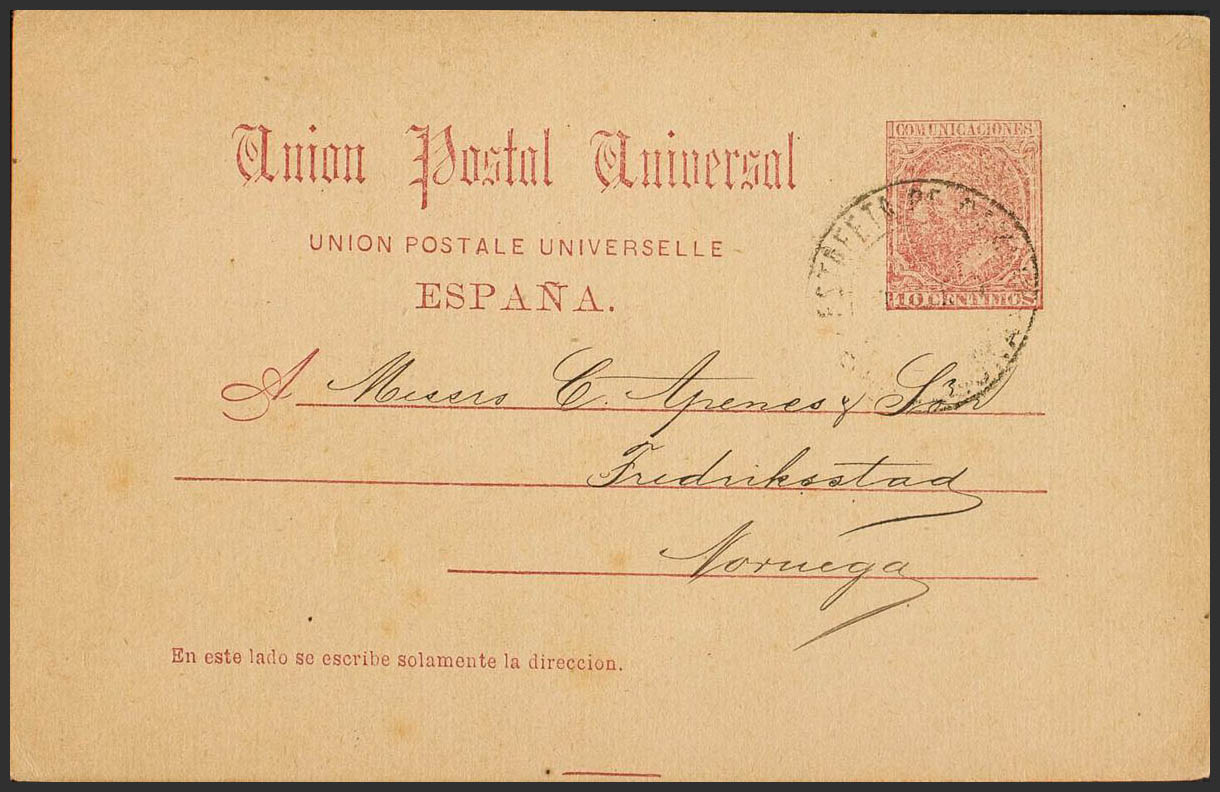 Union Postal Universal
COMUNICACIONES
UNION POSTALE UNIVERSELLE
ESPAÑA.
10 CENTIMOS
ESTAFETA DE
A Messrs C. Apenes & Son
Fredriksstad
Noruega
En este lado se escribe solamente la direccion.